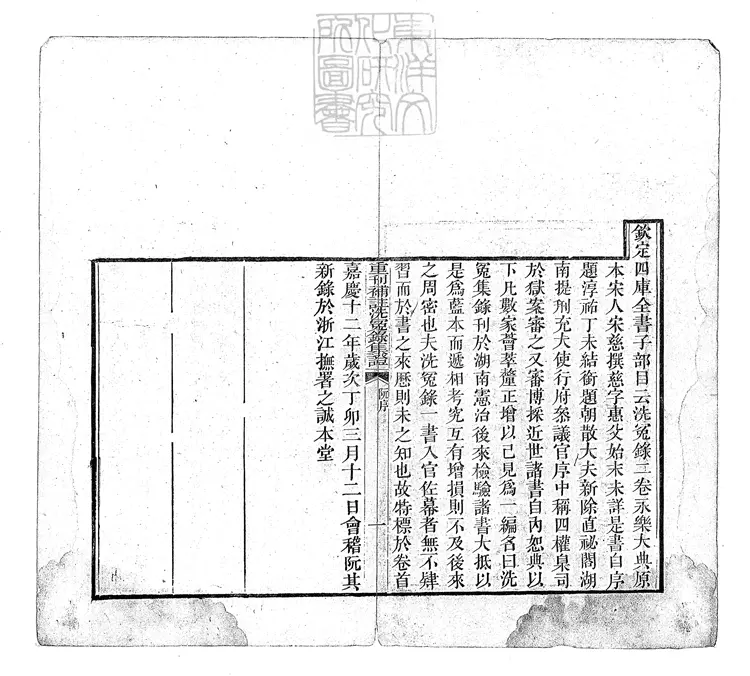 東洋文
化研究
所圖書
欽定四庫全書子部目云洗冤錄二卷永樂大典原
本宋人宋慈撰慈字惠父始末未詳是書自序
題淳祐丁未結銜題朝散大夫新除直祕閣湖
南提刑充大使行府參議官序中稱四權臬司
於獄案審之又審博採近世諸書自內恕典以
下凡數家薈萃釐正增以己見為一編名曰洗
冤集錄刊於湖南憲治後來檢驗諸書大抵以
是為藍本而遞相考究互有增損則不及後來
之周密也夫洗冤錄一書入官佐幕者無不肄
習而於書之來歷則未之知也故特標於卷首
重刊補註洗冤錄集證
阮序
一
嘉慶十二年歲次丁卯三月十二日會稽阮其
新錄於浙江撫署之誠本堂